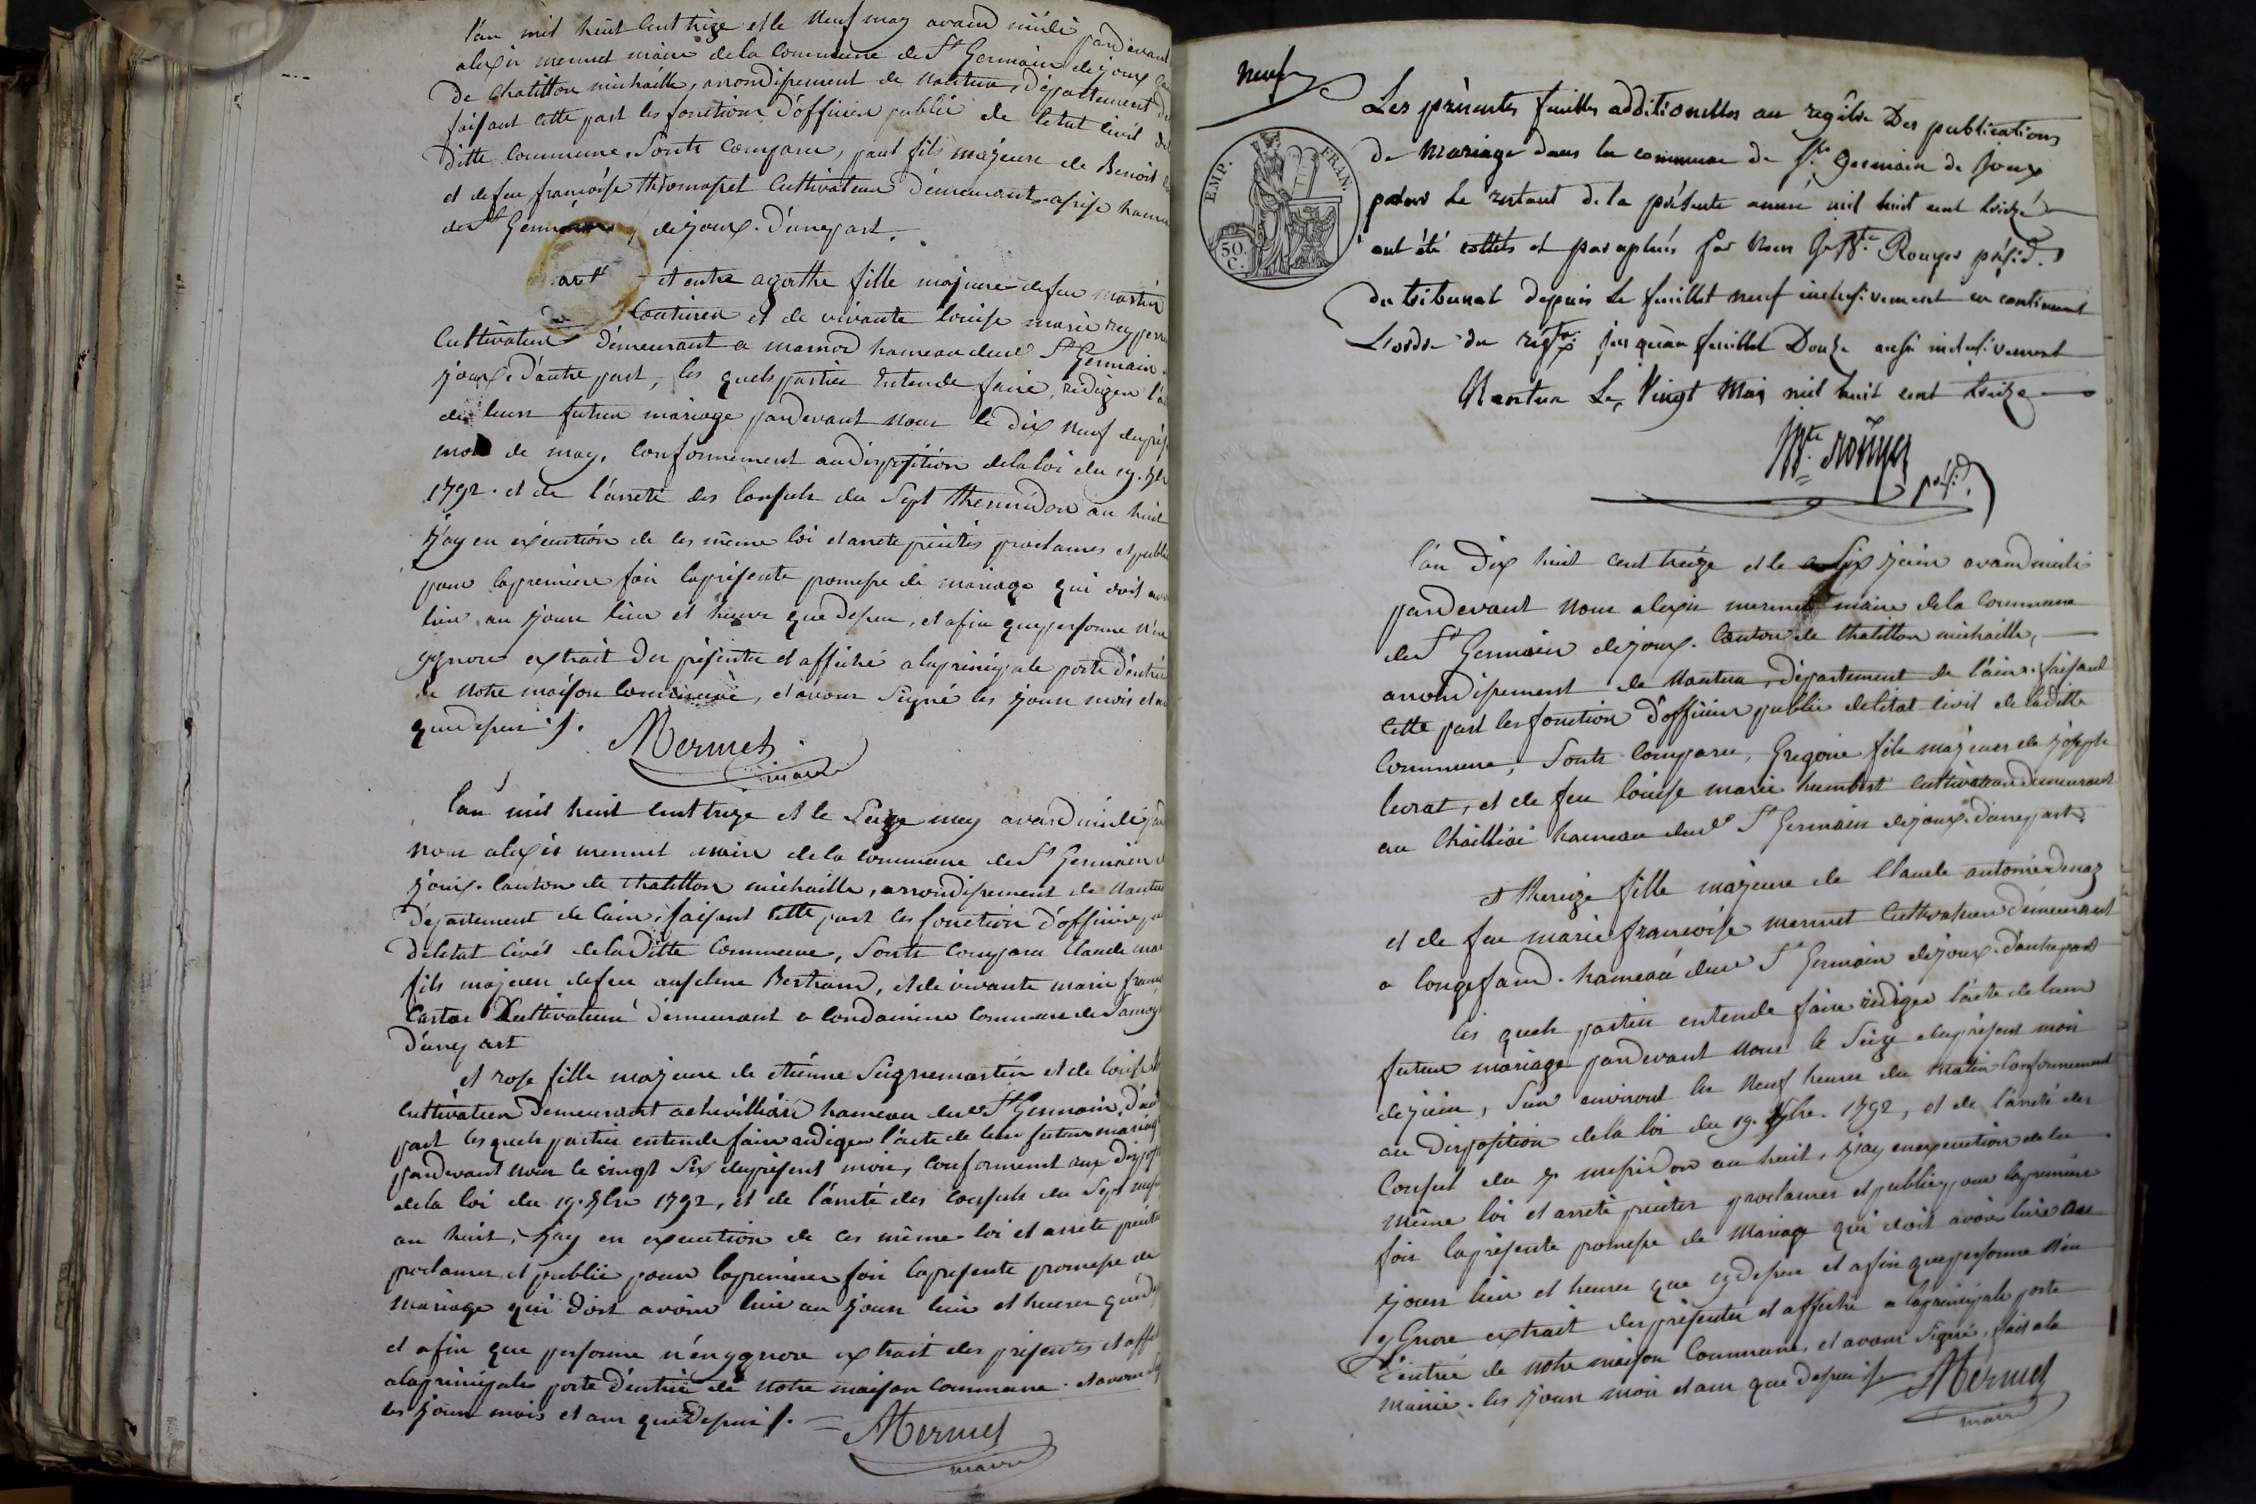 l'an mil huit cent treize et le neuf may avand midi pardevant
alexis mermet maire de la commune de St Germain de joux
de chatillon michaille, arrondissement de nantua, département
faisant cette part les fonctions d'officier public de l'etat civil
ditte commune. Sont comparu, paul fils majeure de Benoit
et de feu françoise thomasset cultivateur démeurant
de St Germain de joux. d'une part.
et entre agathe fille majeure de feu martin
couturier et de vivante louise marie
cultivateur démeurant a marnod hameau dud St Germain
joux. d'autre part, les quels parties entende faire rédiger
de leurs futur mariage pardevant nous le dix neuf du
mois de may, conformement au disposition de la loi du 19. 7bre
1792. et de l'arreté des consuls du sept thermidor an huit
j'ay en exécution de ces même loi et arrete précités proclamer et publié
pour la premiere fois la présente promesse de mariage qui doit
lieu au jour lieu et heure que dessu, et afin que personne n'en
ygnore extrait des présentes et affiché a la principale porte d'entrée
de notre maison commune, et avons signé les jour mois et an
que dessu ./.
AMermet
maire
l'an mil huit cent treize et le seize may avand midi
nous alexis mermet maire de la commune de St Germain
joux. canton de chatillon michaille, arrondissement de nantua
département de l'ain, faisant cette part les fonction d'officier
de l'etat civil de la ditte commune, Sont comparu claude
fils majeur de feu anselme Bertrand, et de vivante marie
cultivateur démeurant a condamine commune de
d'une part
et rose fille majeure de étienne Seignemartin et de louise
cultivateur demeurant a chevillian hameau dud St Germain,
part les quels parties entende faire rediger l'acte de leur futur mariage
pardevant nous le vingt six du présent mois, conforment aux
de la loi du 19. 7bre 1792, et de l'areté des consuls du sept
an huit, j'ay en execution de ces même loi et arrete
proclamer et publié pour la premiere fois la presente promesse de
mariage qui doit avoir lieu au jour lieu et heure
et afin que personne n'en ygnore extrait des présentes et
a la principale porte d'entrée de notre maison commune. et avons
les jours mois et an que dessu ./.
AMermet
maire
neuf
EMP. FRAN.
50 C.
Les présentes feuilles additionelles au regître Des publications
de Mariage dans la commune de St Germain de Joux
pour Le restant de la présente année mil huit cent treize
ont été cottés et paraphés par Nous Rouyer présid.t
du tribunal depuis Le feuillet neuf inclusivement en continuant
L'ordre du regtre jusqu'au feuillet Douze aussi inclusivement
Nantua Le Vingt Mai mil huit cent treize
Rouyer
présid.
l'an dix huit cent treize et le six juin avand midi
pardevant nous alexis mermet maire de la commune
de St Germain de joux. canton de chatillon michaille,
arrondissement de nantua, département de l'ain, faisant
cette part les fonction d'officier public de l'etat civil de la ditte
commune, Sont comparu, Gregoire fils majeur de joseph
leurat, et de feu louise marie humbert cultivateur démeurant
au hameau dud St Germain de joux. d'une part.
et thereize fille majeure de claude antoine
et de feu marie françoise mermet cultivateur démeurant
a longefand. hameau dud St Germain de joux. d'autre part
les quels parties entende faire rédiger l'acte de leur
futur mariage pardevant nous le seize du présent mois
de juin, sur environt les neuf heures du matin conformement
au disposition de la loi du 19. 7bre. 1792, et de l'arreté des
consul du 7 messidor an huit, j'ay en execution de la
même loi et arreté précités proclamer et publié pour la premiere
fois la présente promesse de mariage qui doit avoir lieu au
jour lieu et heures que cy dessu et afin que personne n'en
ygnore extrait des présentes et affiché a la principale porte
d'entrée de notre maison commune, et avons signé, fait a la
mairie. les jour mois et an que dessu ./. AMermet
maire